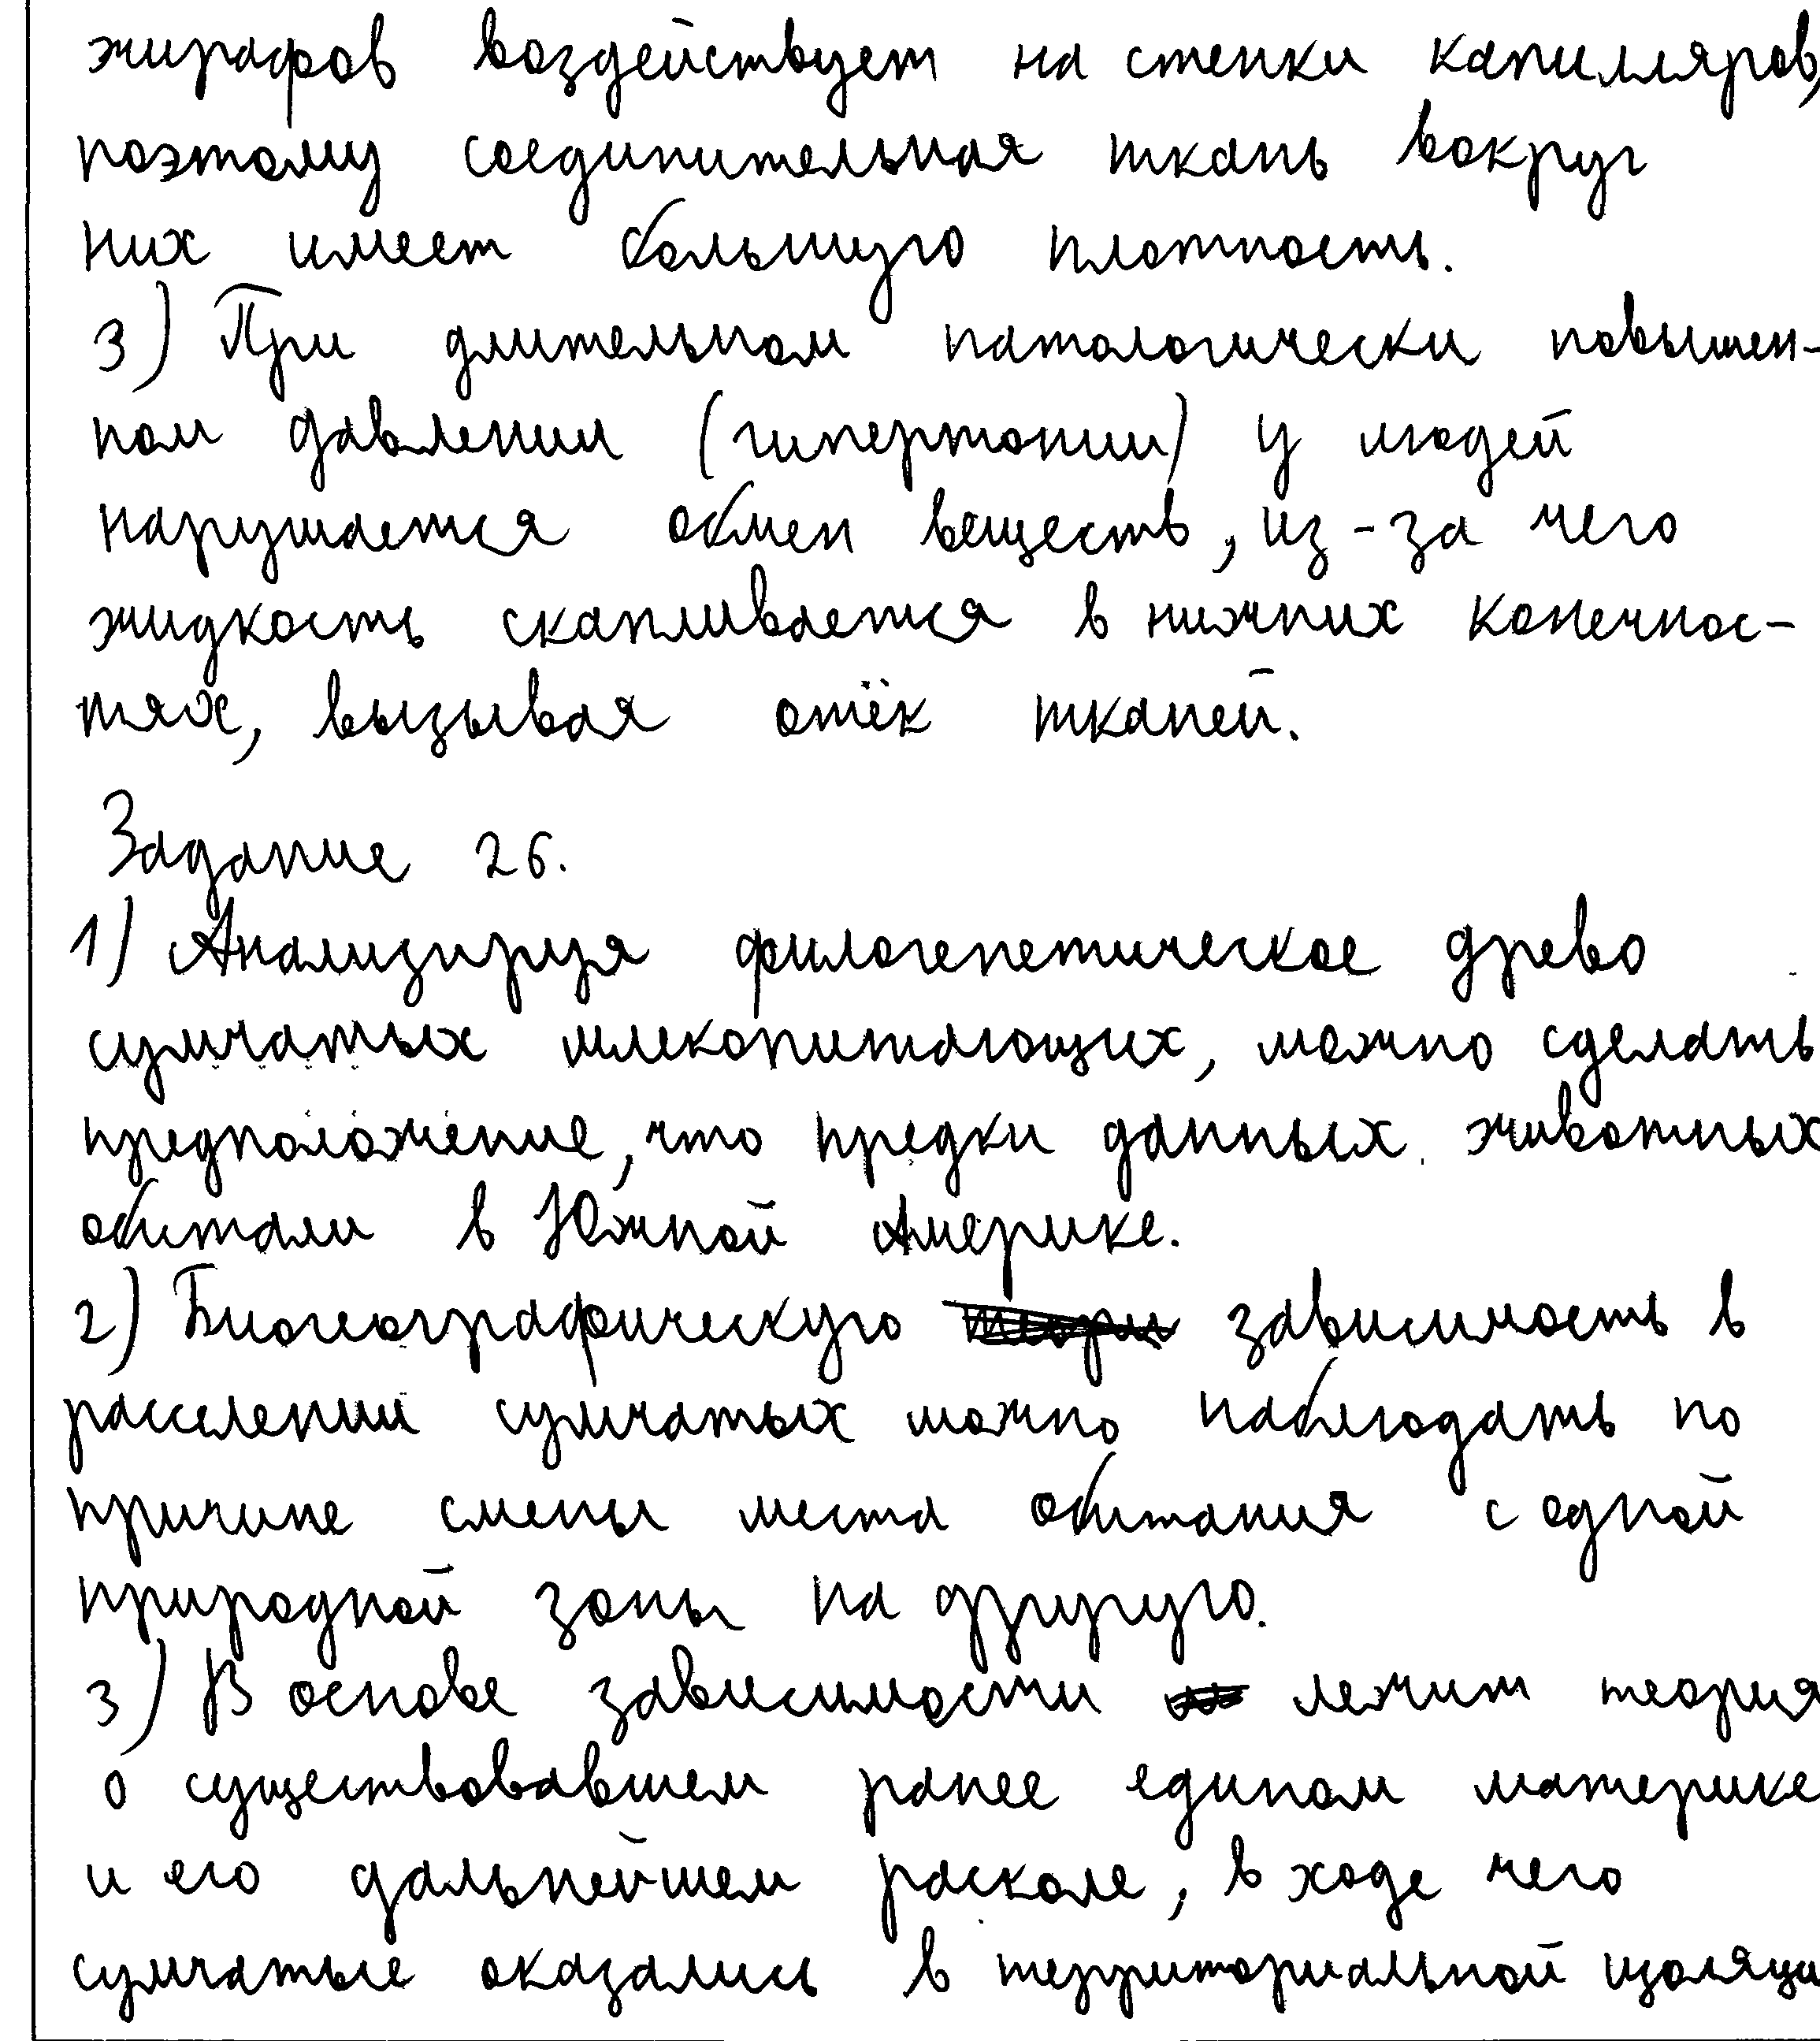 жирафов воздействует на стенки капилляров,
поэтому соединительная ткань вокруг
них имеет большую плотность.
3) При длительном патологически повышен-
ном давлении (гипертонии) у людей
нарушается обмен веществ, из-за чего
жидкость скапливается в нижних конечнос-
тях, вызывая отёк тканей.
Задание 26.
1) Анализируя филогенетическое древо
сумчатых млекопитающих, можно сделать
предположение, что предки данных животных
обитали в Южной Америке.
2) Биогеографическую зависимость в
расселении сумчатых можно наблюдать по
причине смены места обитания с одной
природной зоны на другую.
3) В основе зависимости лежит теория
о существовавшем ранее едином материке
и его дальнейшем расколе, в ходе чего
сумчатые оказались в территориальной изоляци